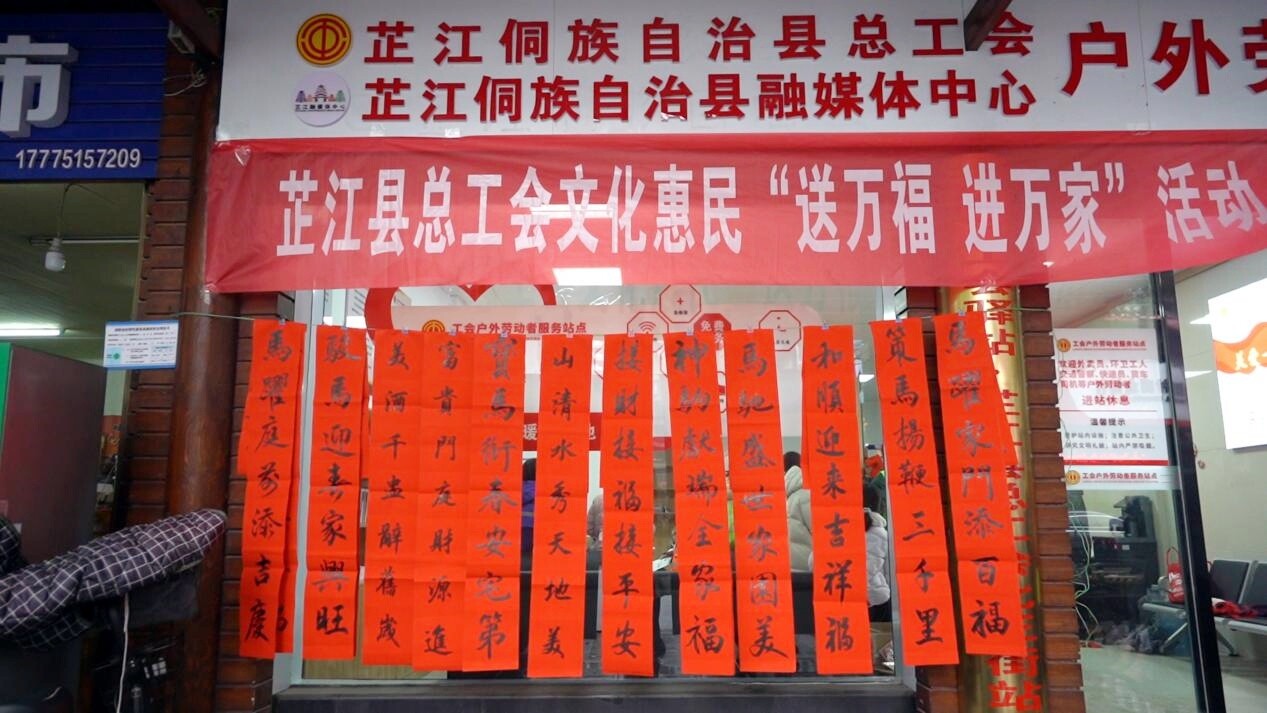 市
17775157209
芷江侗族自治县总工会
芷江侗族自治县融媒体中心
户外劳
芷江县总工会文化惠民“送万福 进万家”活动
工会户外劳动者服务站点
免费
馬躍庭芬添吉慶
駿馬迎春家興旺
美酒千盅辭舊歲
富貴門庭財源進
寶馬銜春安宅第
山清水秀天地美
接財接福接平安
神駒獻瑞全家福
馬馳盛世家園美
和順迎来吉祥福
策馬揚鞭三千里
馬躍家門添百福
工会户外劳动者服务站点
进站休息
温馨提示
工会户外劳动者服务站点
街站